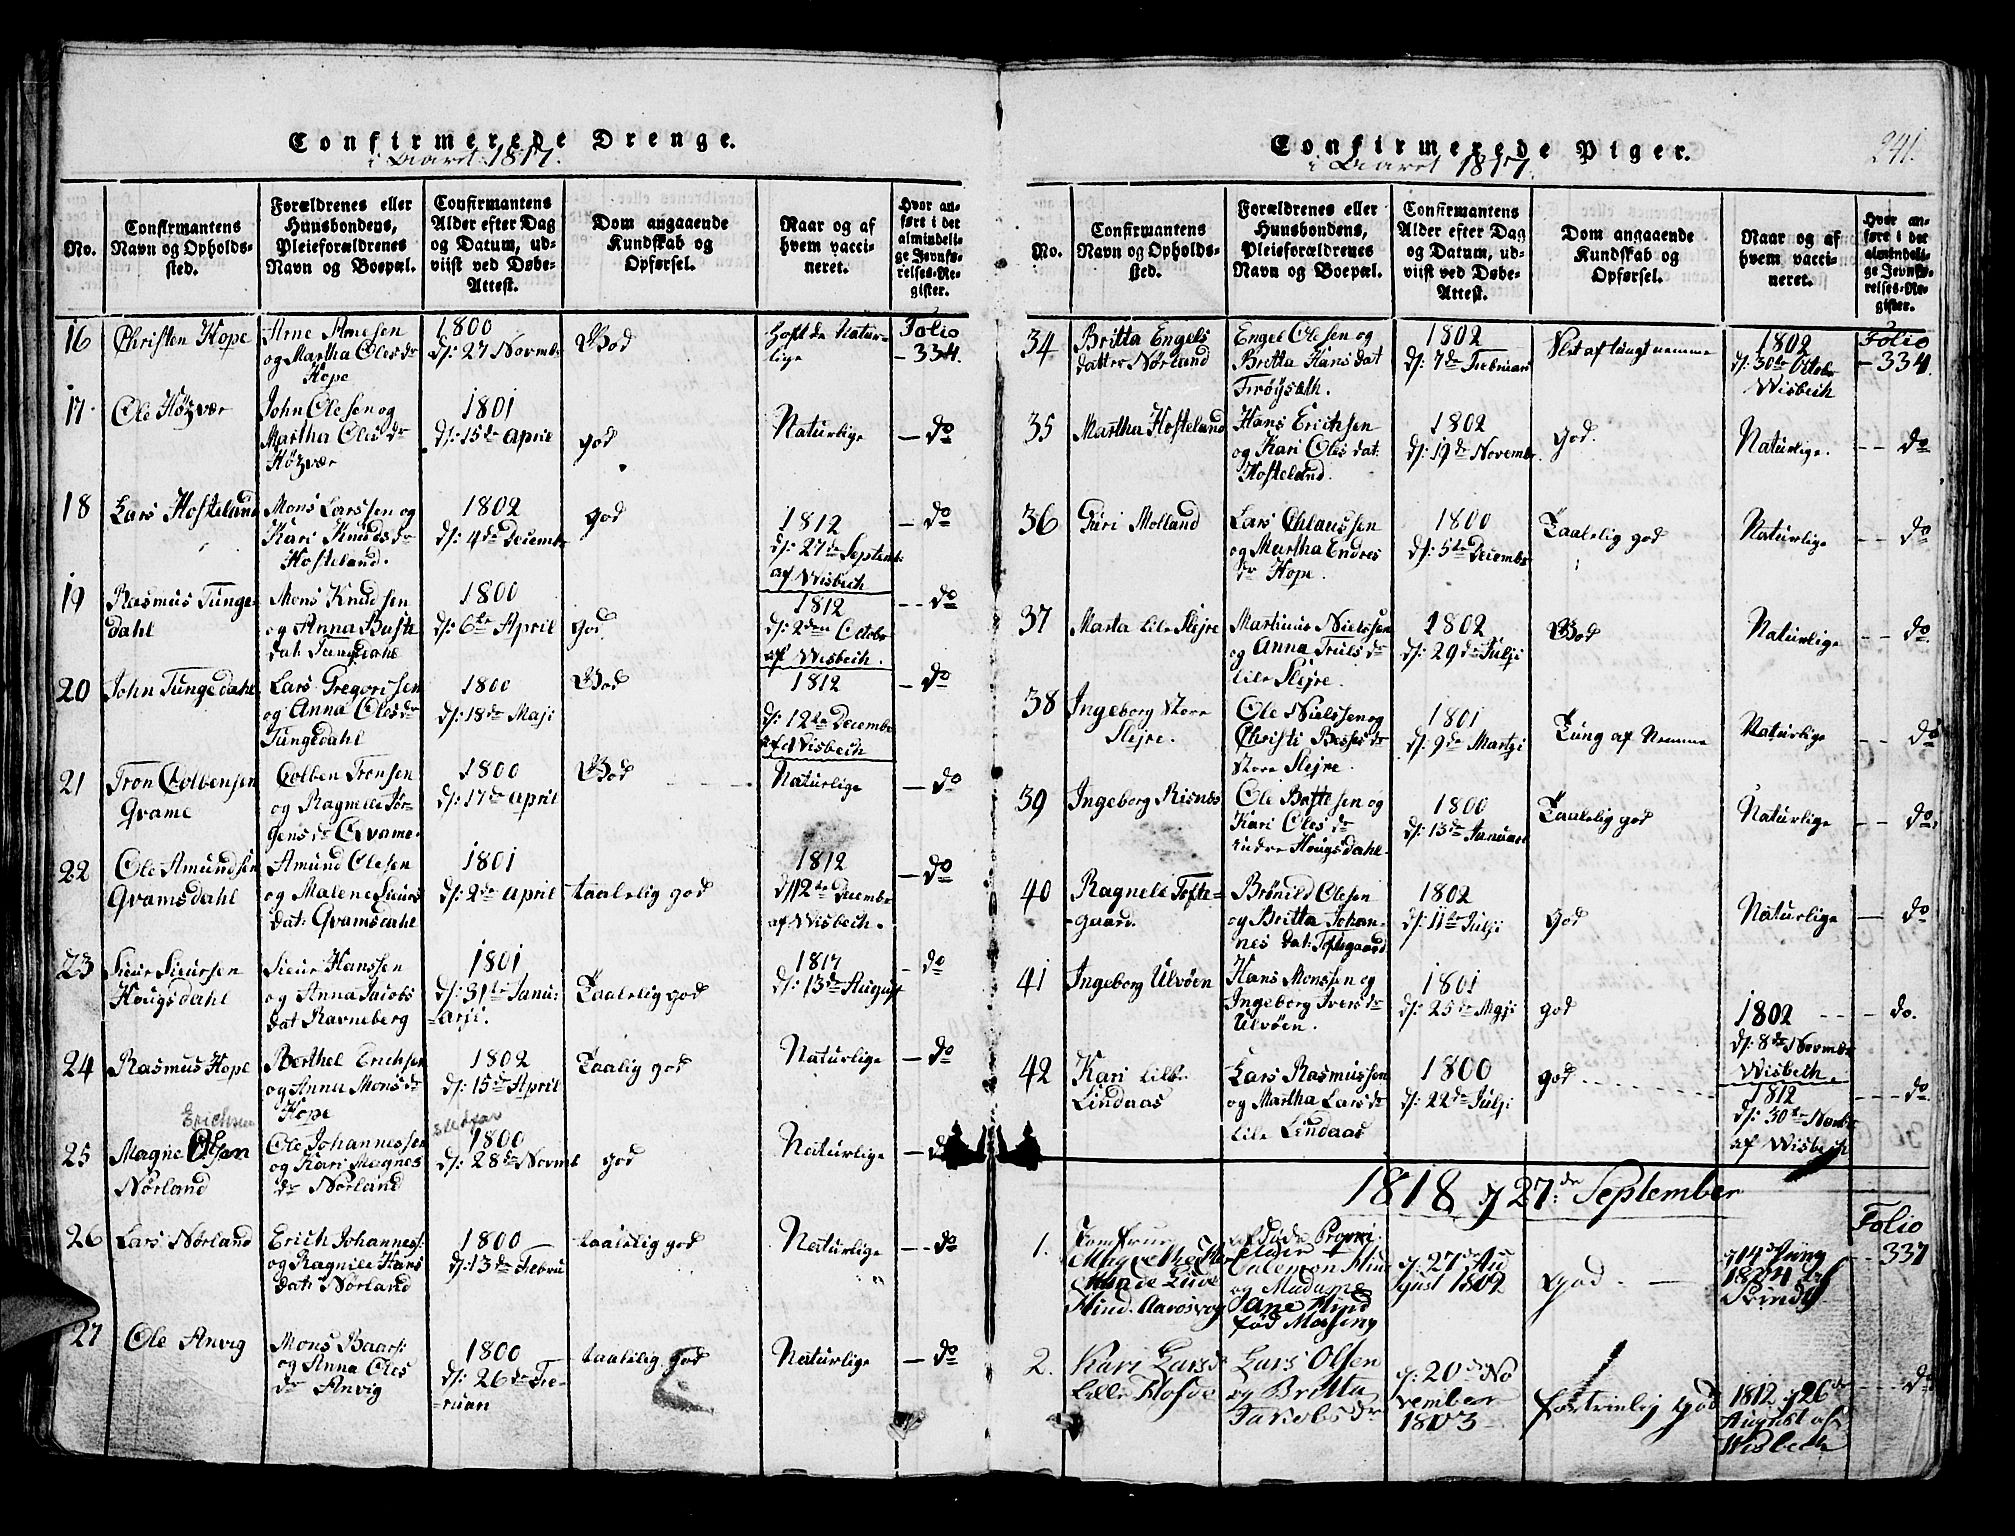 Confirmerede Drenge.
i Aaret 1817.
No.
Confirmantens
Navn og Opholds-
sted.
Forældrenes eller
Huusbondens,
Pleieforældrenes
Navn og Boepæl.
Confirmantens
Alder efter Dag
og Datum, ud-
viist ved Døbe-
Attest.
Dom angaaende
Kundskab og
Opførsel.
Naar og af
hvem vacci-
neret.
Hvor an-
ført i det
almindeli-
ge Jevnfø-
relses-Re-
gister.
16
Christen Hope
Arne Arnesen
og Martha Olesdr
Hope
1800
d: 27 Novmb
God
haft de Natur-
lige
Folio
- 334.
17.
Ole Høzvær
John Olesen og
Martha Olesdr
Høzvær
1801
d: 15de April
god
Naturlige
— do
18
Lars Hosteland
Mons Larssen og
Kari Knudsdr
Hosteland.
1802
d: 4de Decembr
god
1812
d: 27de Septembr
af Wisbech
— do
19
Rasmus Tunge-
dahl
Mons Knudsen
og Anna Baste
dat Tungedahl
1800
d: 6te April
god.
1812
d: 2den Octobr
af Wisbech.
-- do
20
John Tungedahl
Lars Gregorissen
og Anna Olesdr
Tungedahl
1800
d: 18de Maji
God
1812
d: 12te Decembr
af Wisbech
— do
21
Tron Colbensen
Qvame
Colben Tronsen
og Ragnele Jør-
gensdr Qvame.
1800
d: 17de April
God
Naturlige
— do
22
Ole Amundsen
Qvamsdahl
Amund Olesen
og Malene Siurs
dat: Qvamsdahl
1801
d: 2de April
taalelig god
1812
d: 12te Decembr
af Wisbech.
— do
23
Siur Siursen
Hougsdahl
Siur Hanssen
og Anna Jacobs
dat Ravneberg
1801
d: 31te Janu-
arji.
Taalelig god
1817
d: 13de August
- do
24
Rasmus Hope
Berthel Erichsen
og Anna Monsdr
Hope
1802
d: 15de April
Taalig god
Naturlige
— do
25
Erichsen
Magne Olsen
Nørland
Ole Johannessen
og Kari Magnes
dr Nørland
1800
d: 28de Novmb
god
Naturlige
— do
26
Lars Nørland
Erich Johanness:
og Ragnile Hans
dat: Nørland
1800
d: 13de Febru
taalelig god
Naturlige
-- do
27
Ole Anvig
Mons Baars:
og Anna Oles
dr Anvig
1800
d: 26de Fe-
-ruari
taalelig god
Naturlige
— do
Confirmerede Piger.
i Aaret 1817.
241.
No.
Confirmantens
Navn og Opholds-
sted.
Forældrenes eller
Huusbondens,
Pleieforældrenes
Navn og Boepæl.
Confirmantens
Alder efter Dag
og Datum, ud-
viist ved Døbe-
Attest.
Dom angaaende
Kundskab og
Opførsel.
Naar og af
hvem vacci-
neret.
Hvor an-
ført i det
almindeli-
ge Jevnfø-
relses-Re-
gister.
34
Britta Engels
datter Nørland
Engel Olesen og
Britta Hansdat
Frøysath.
1802
d: 7de Februari
Slet af tungt nemme
1802
d: 30te Octobr
Wisbech
Folio
- 334.
35
Martha Hosteland
Hans Erichsen
og Kari Olesdat:
Hosteland.
1802
d: 19de Novembr
god.
Naturlige.
-- do
36
Guri Molland
Lars Chlaussen
og Martha Endres
dr Hope.
1800
d: 5te Decembr
Taalelig god
Naturlige
-- do
37
Marta lile Slejre
Martinus Nielssen
og Anna Truls dr
lile Slejre.
1802
d: 29de Julji
God
Naturlige
-- do.
38
Ingeborg Store
Slejre.
Ole Nielssen og
Christi Besses dr
Store Slejre.
1801
d: 9de Martji
Tung af Nemme
Naturlige
-- do
39
Ingeborg Risnes
Ole Baltesen og
Kari Olesdr
indre Hougsdahl.
1800
d: 13de Januari
Taalelig god
Naturlige
-- do.
40
Ragnele Tofte-
-gaard.
Brønild Olesen
og Britta Johan-
nes dat: Toftegaard
1802
d: 11te Julji
god
Naturlige
— do
41
Ingeborg Ulvøen
Hans Monssen og
Ingeborg Iversdr
Ulvøen.
1801
d: 25de Maji
god
1802
d: 8de Novmbr
Wisbech
- do.
42
Kari lille
Lindaas
Lars Rasmussen
og Martha Larsdr
lile Lindaas
1800
d: 22de Julji
god
1812
d: 30te Novbr
af Wisbech
--- do
1818 d 27de September
1.
Jomfrue
Hind. Aarosvog
afdøde Propri-
Calemon Hind
og Madame
Jane Hind
fød Massing
d: 27de Au
gust 1802
God. —
Folio
-- 337
2.
Kari Larsd
Lille Hosde
Lars Olsen
og Britta
Jakobsdr
d: 20de No
vember
1803
fortrinlig God
1812 d 26de
August af
Wisbech
--- do